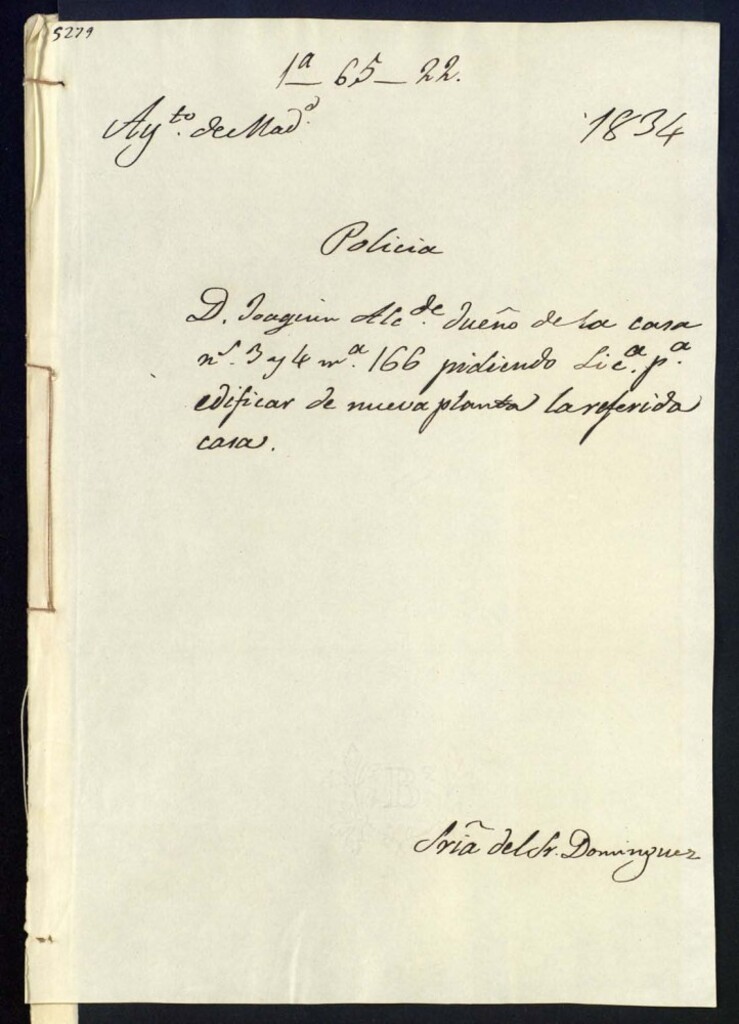 5279
1ª 65-22.
Ayto. de Madd.
1834
Policia
D. Joaquin Alcde. dueño de la casa
ns. 3 y 4 mª. 166 pidiendo Licª. pª.
edificar de nueva planta la referida
casa.
B
Sria del Sr. Dominguez